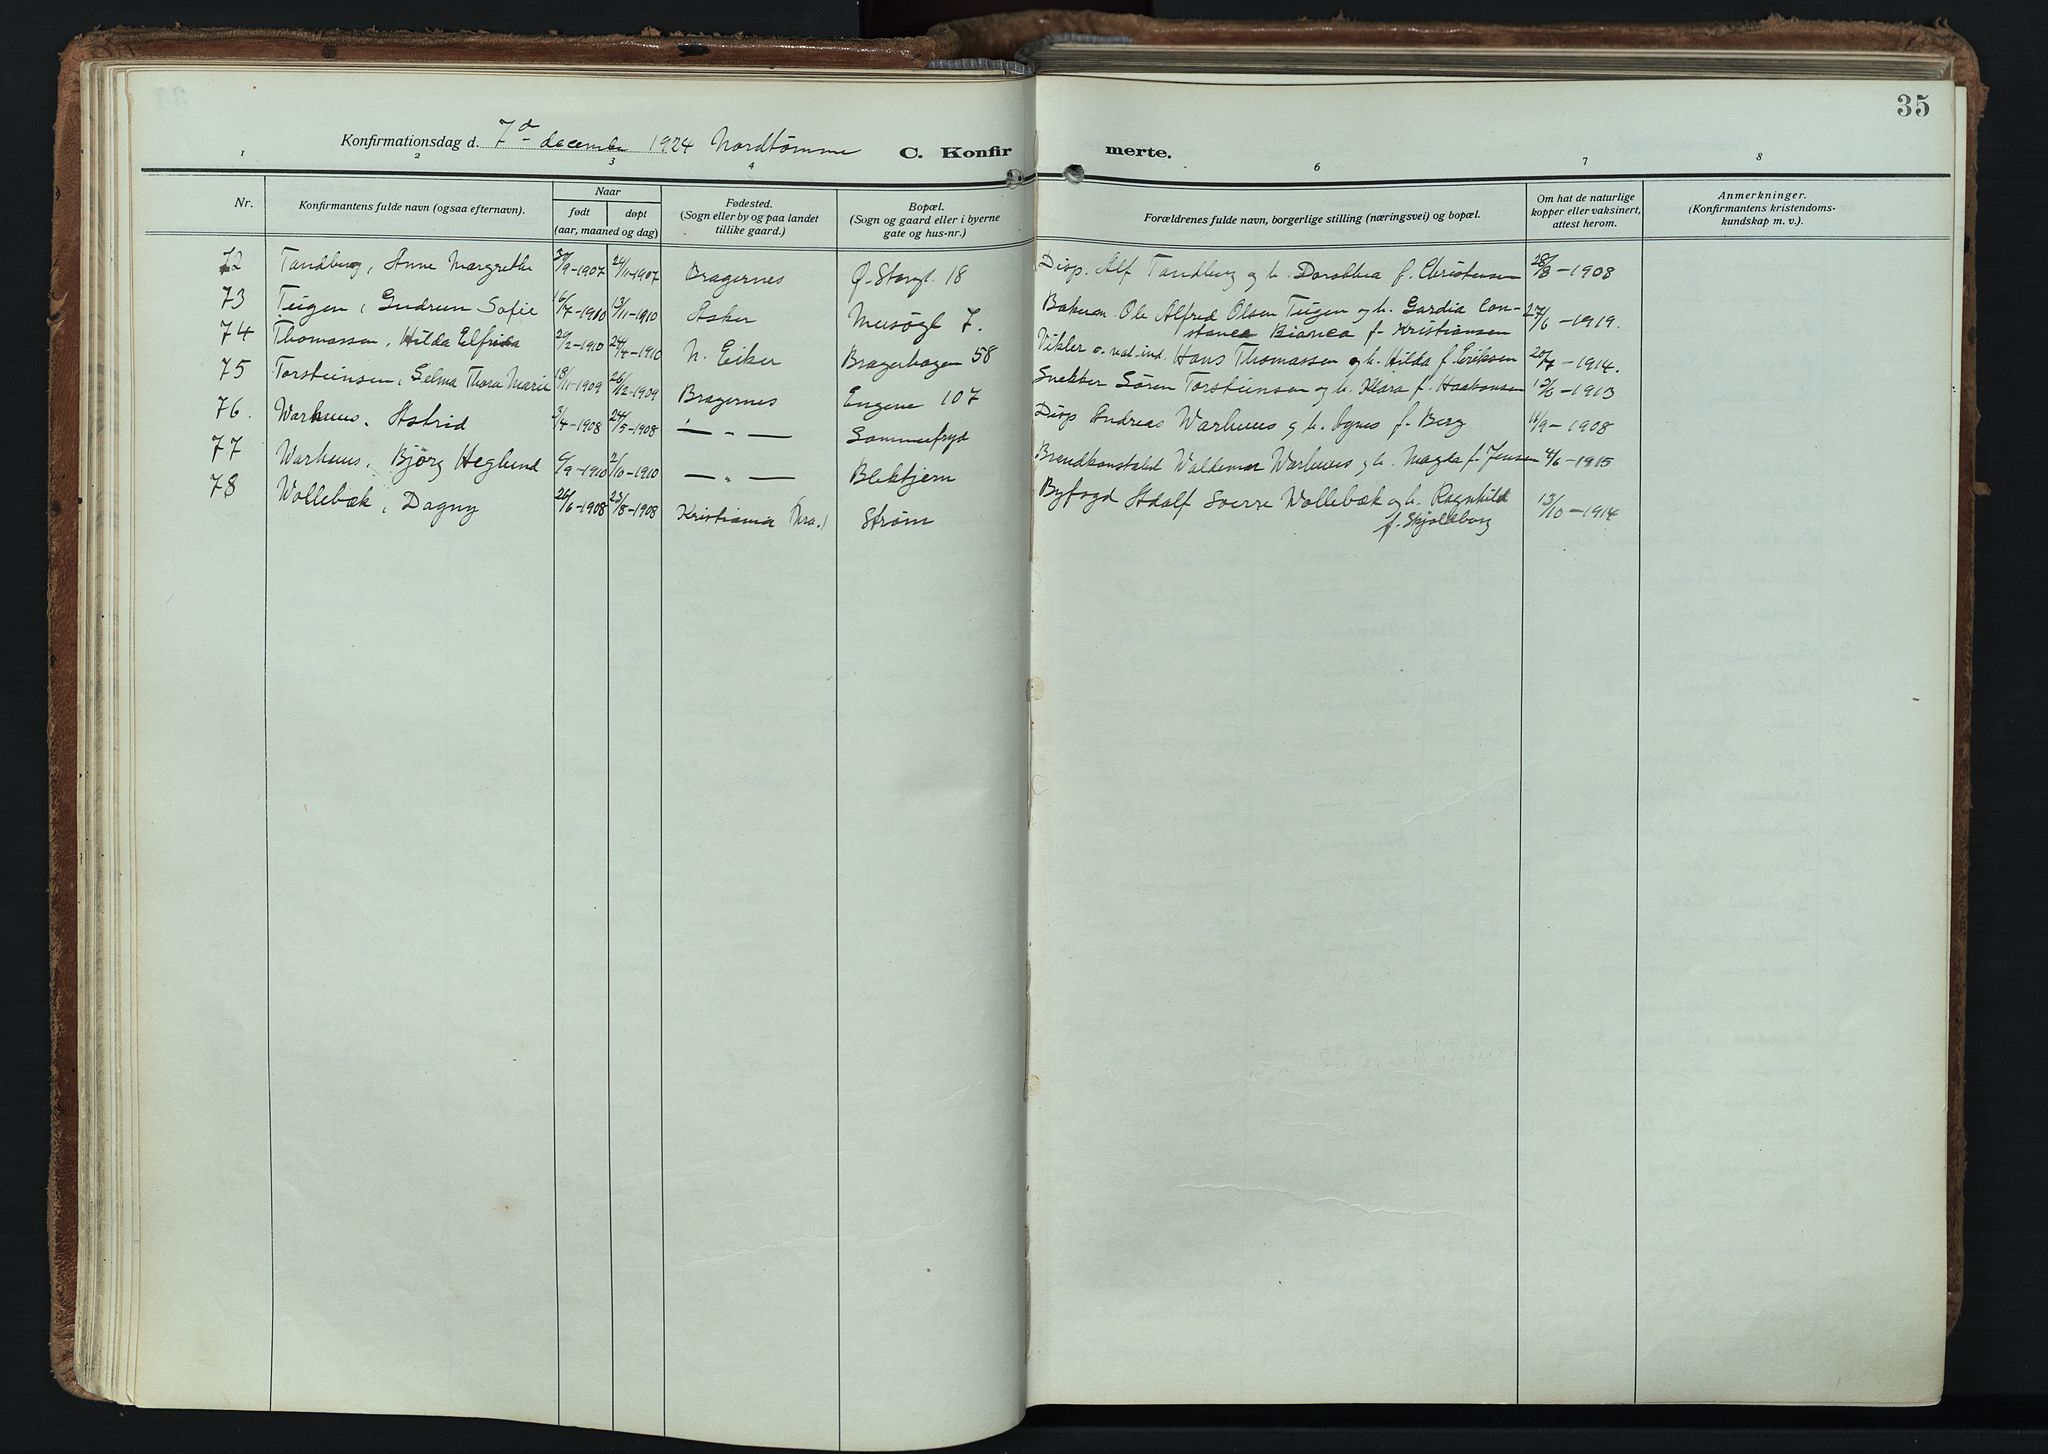 35
Konfirmationsdag d. 7de december 1924 Nordtømme C. Konfirmerte.
1 2 3 4 5 6 7 8
Nr.
Konfirmantens fulde navn (ogsaa efternavn).
Naar
født døpt
(aar, maaned og dag)
Fødested.
(Sogn eller by og paa landet
tillike gaard.)
Bopæl.
(Sogn og gaard eller i byerne
gate og hus-nr.)
Forældrenes fulde navn, borgerlige stilling (næringsvei) og bopæl.
Om hat de naturlige
kopper eller vaksinert,
attest herom.
Anmerkninger.
(Konfirmantens kristendoms-
kundskap m. v.).
72 Tandberg, Anne Margrethe 30/9-1907 24/11-1907 Bragernes Ø. Storgt. 18 Disp. Alf Tandberg og h. Dorothea f. Christensen 28/8-1908
73 Teigen, Gudrun Sofie 16/7-1910 13/11-1910 Asker Ole Alfred Olsen Teigen og h. Gardia Con-
stance Bianca f. Kristiansen 27/6-1919.
74 Thomassen, Hilda Elfrida 20/2-1910 24/4-1910 N. Eiker Bragerhagen 58 Hans Thomassen og h. Hilda f. Eriksen 20/7-1914.
75 Torsteinsen, Selma Thora Marie 18/11-1909 26/12-1909 Bragernes Engene 107 Snekker Søren Torsteinsen og h. Klara f. Haakonsen 13/6-1913
76. Warhuus, Astrid 3/4-1908 24/5-1908 — " — Sommerfryd Disp Andreas Warhuus og h. Agnes f. Berg 11/9-1908
77 Warhuus, Bjørg Heglund 6/9-1910 2/10-1910 — " — Blektjern Brandkonstabel Waldemar Warhuus og h. Magda f. Jensen 4/6-1915
78 Wollebæk, Dagny 26/6-1908 23/8-1908 Kristiania Strøm Byfogd Adolf Sverre Wollebæk og h. Ragnhild
f. Skjoldborg 13/10-1914